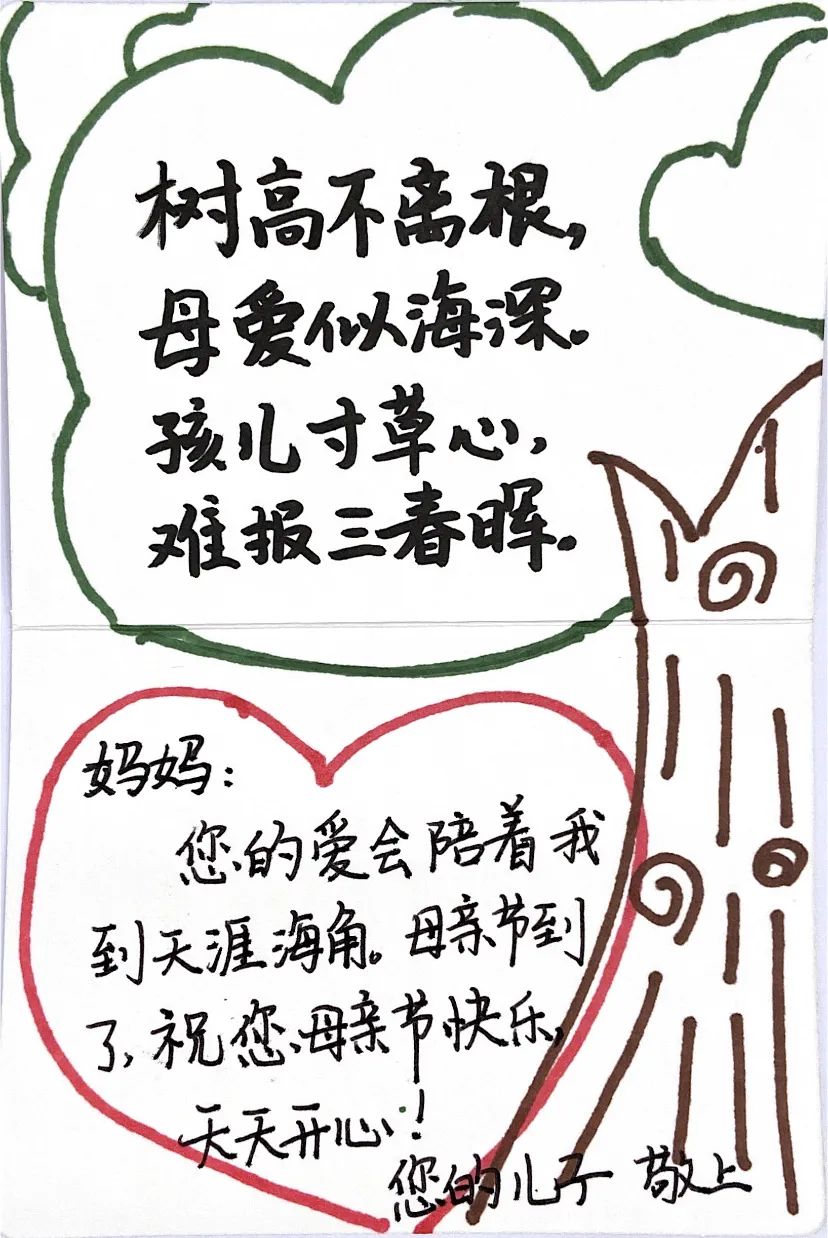 树高不离根,
母爱似海深.
孩儿寸草心,
难报三春晖.
妈妈:
您的爱会陪着我
到天涯海角。母亲节到
了,祝您母亲节快乐,
天天开心!
您的儿子 敬上